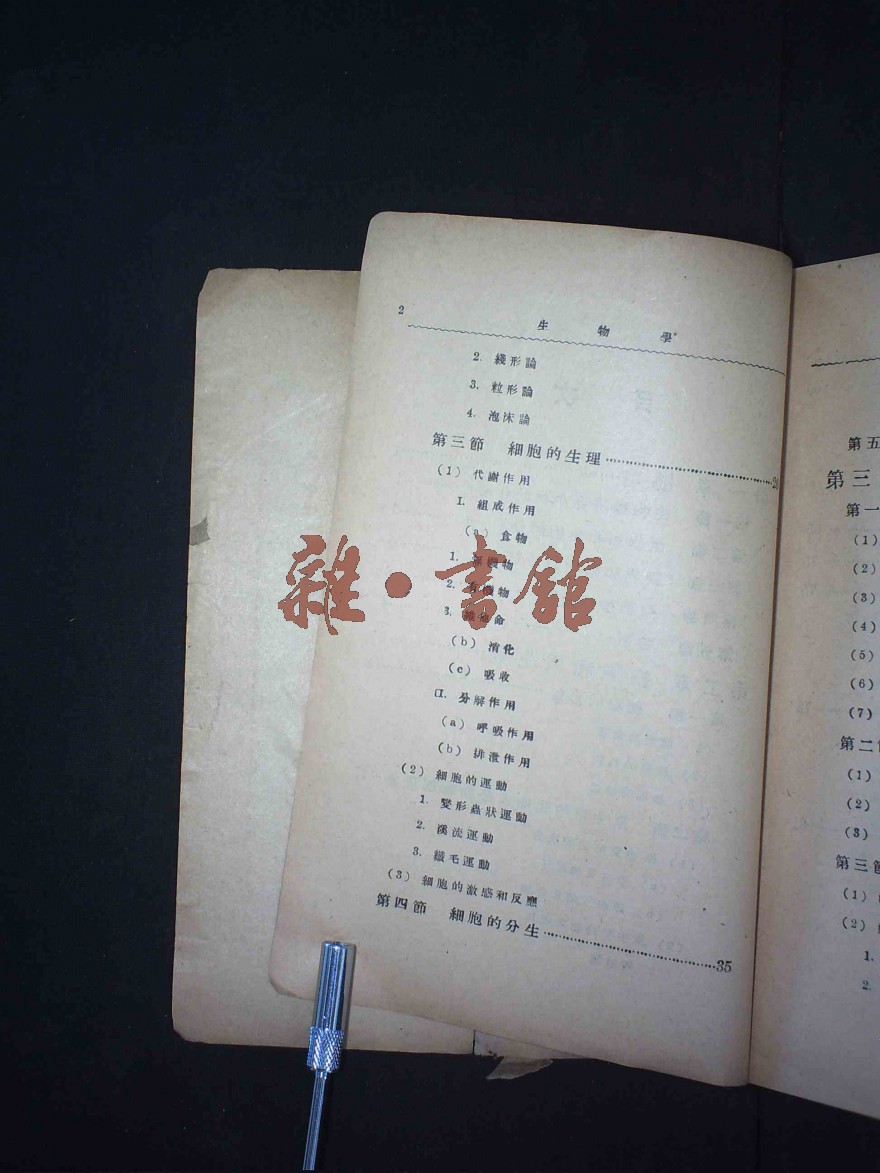 2
生物學
2. 綫形論
3. 粒形論
4. 泡沫論
第三節 細胞的生理
(1) 代謝作用
I. 組成作用
(a) 食物
1. 無機物
2. 有機物
3. 維他命
(b) 消化
(c) 吸收
II. 分解作用
(a) 呼吸作用
(b) 排泄作用
(2) 細胞的運動
1. 變形蟲狀運動
2. 漢流運動
3. 纖毛運動
(3) 細胞的激感和反應
第四節 細胞的分生……35
雜·書館
第五
第三
第一
(1)
(2)
(3)
(4)
(5)
(6)
(7)
第二
(1)
(2)
(3)
第三節
(1)
(2)
1.
2.